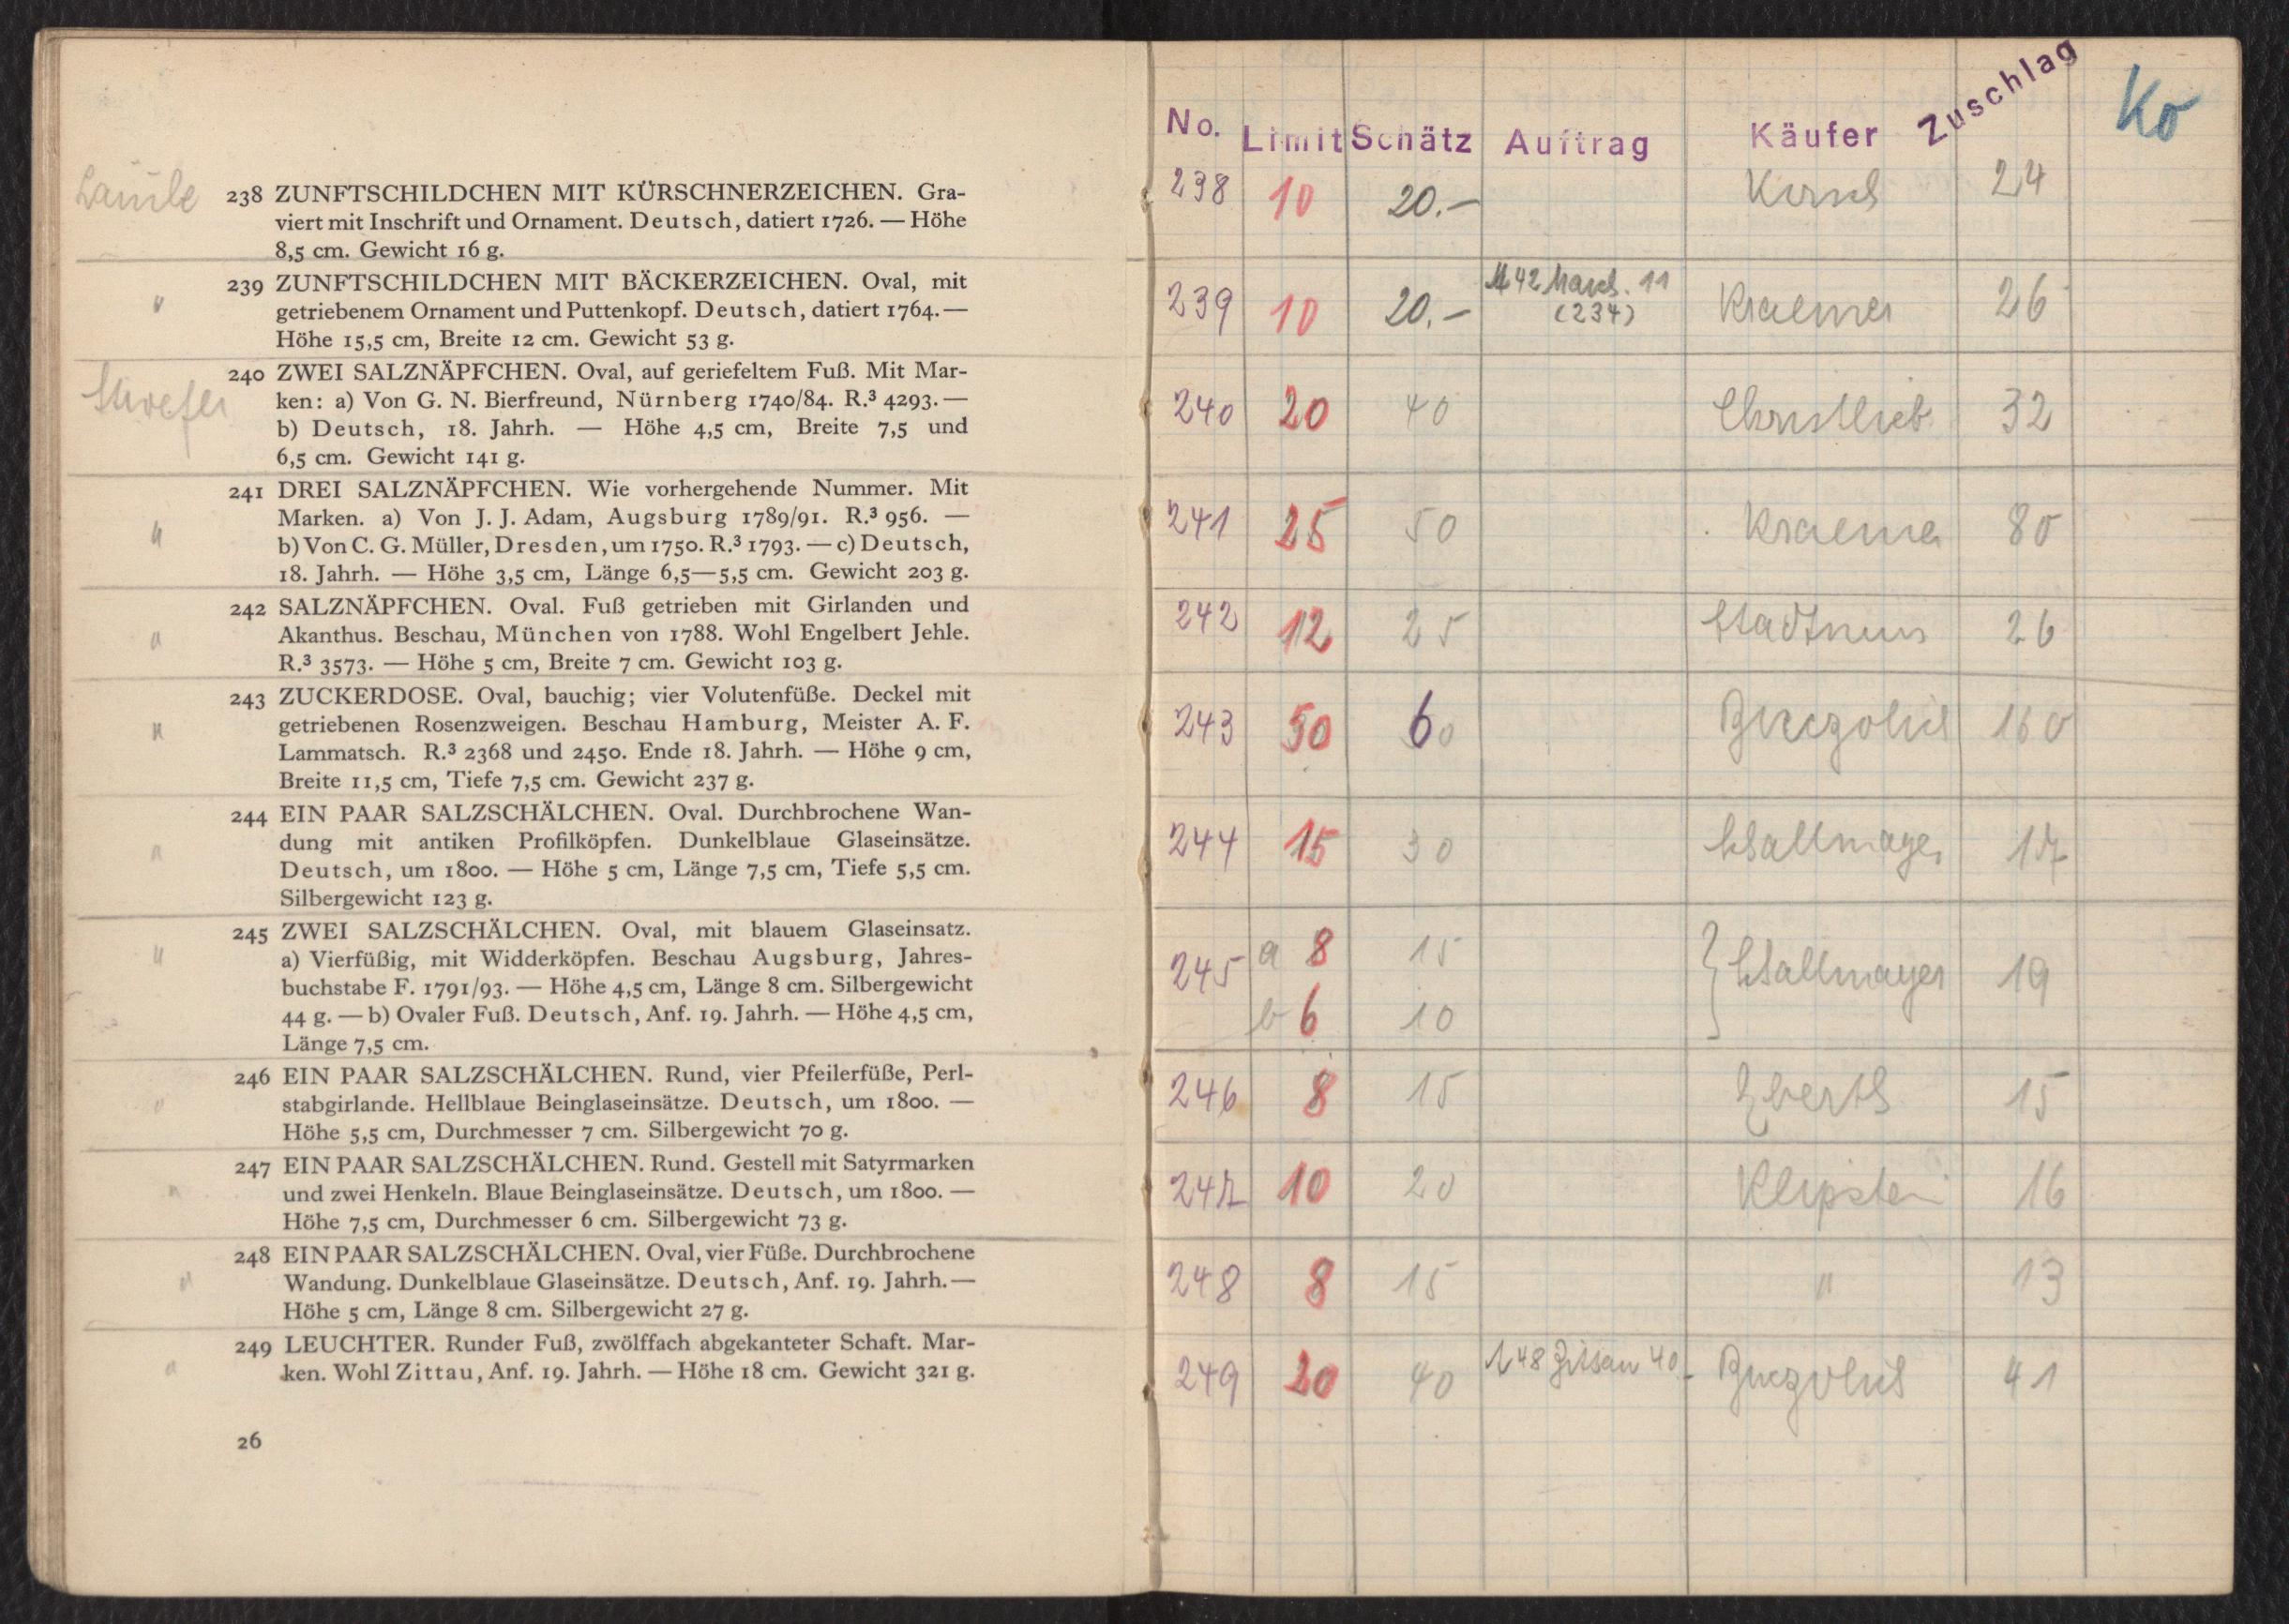 238 ZUNFTSCHILDCHEN MIT KÜRSCHNERZEICHEN. Gra-
viert mit Inschrift und Ornament. Deutsch, datiert 1726. — Höhe
8,5 cm. Gewicht 16 g.
"
239 ZUNFTSCHILDCHEN MIT BÄCKERZEICHEN. Oval, mit
getriebenem Ornament und Puttenkopf. Deutsch, datiert 1764. —
Höhe 15,5 cm, Breite 12 cm. Gewicht 53 g.
240 ZWEI SALZNÄPFCHEN. Oval, auf geriefeltem Fuß. Mit Mar-
ken: a) Von G. N. Bierfreund, Nürnberg 1740/84. R.³ 4293. —
b) Deutsch, 18. Jahrh. — Höhe 4,5 cm, Breite 7,5 und
6,5 cm. Gewicht 141 g.
"
241 DREI SALZNÄPFCHEN. Wie vorhergehende Nummer. Mit
Marken. a) Von J. J. Adam, Augsburg 1789/91. R.³ 956. —
b) Von C. G. Müller, Dresden, um 1750. R.³ 1793. — c) Deutsch,
18. Jahrh. — Höhe 3,5 cm, Länge 6,5—5,5 cm. Gewicht 203 g.
"
242 SALZNÄPFCHEN. Oval. Fuß getrieben mit Girlanden und
Akanthus. Beschau, München von 1788. Wohl Engelbert Jehle.
R.³ 3573. — Höhe 5 cm, Breite 7 cm. Gewicht 103 g.
"
243 ZUCKERDOSE. Oval, bauchig; vier Volutenfüße. Deckel mit
getriebenen Rosenzweigen. Beschau Hamburg, Meister A. F.
Lammatsch. R.³ 2368 und 2450. Ende 18. Jahrh. — Höhe 9 cm,
Breite 11,5 cm, Tiefe 7,5 cm. Gewicht 237 g.
"
244 EIN PAAR SALZSCHÄLCHEN. Oval. Durchbrochene Wan-
dung mit antiken Profilköpfen. Dunkelblaue Glaseinsätze.
Deutsch, um 1800. — Höhe 5 cm, Länge 7,5 cm, Tiefe 5,5 cm.
Silbergewicht 123 g.
"
245 ZWEI SALZSCHÄLCHEN. Oval, mit blauem Glaseinsatz.
a) Vierfüßig, mit Widderköpfen. Beschau Augsburg, Jahres-
buchstabe F. 1791/93. — Höhe 4,5 cm, Länge 8 cm. Silbergewicht
44 g. — b) Ovaler Fuß. Deutsch, Anf. 19. Jahrh. — Höhe 4,5 cm,
Länge 7,5 cm.
"
246 EIN PAAR SALZSCHÄLCHEN. Rund, vier Pfeilerfüße, Perl-
stabgirlande. Hellblaue Beinglaseinsätze. Deutsch, um 1800. —
Höhe 5,5 cm, Durchmesser 7 cm. Silbergewicht 70 g.
"
247 EIN PAAR SALZSCHÄLCHEN. Rund. Gestell mit Satyrmarken
und zwei Henkeln. Blaue Beinglaseinsätze. Deutsch, um 1800. —
Höhe 7,5 cm, Durchmesser 6 cm. Silbergewicht 73 g.
"
248 EIN PAAR SALZSCHÄLCHEN. Oval, vier Füße. Durchbrochene
Wandung. Dunkelblaue Glaseinsätze. Deutsch, Anf. 19. Jahrh. —
Höhe 5 cm, Länge 8 cm. Silbergewicht 27 g.
"
249 LEUCHTER. Runder Fuß, zwölffach abgekanteter Schaft. Mar-
ken. Wohl Zittau, Anf. 19. Jahrh. — Höhe 18 cm. Gewicht 321 g.
26
No. Limit Schätz Auftrag Käufer Zuschlag Ko
238 10 20.- 24
239 10 20.- 42 11 (234) Kraemer 26
240 20 40 Christlieb 32
241 25 50 Kraemer 80
242 12 25 Stadtmus 26
243 50 60 160
244 15 30 Wallmayer 17
245 a 8 15 Wallmayer 19
b 6 10
246 8 15 15
247 10 20 Klipstein 16
248 8 15 " 13
249 20 40 48 40 41